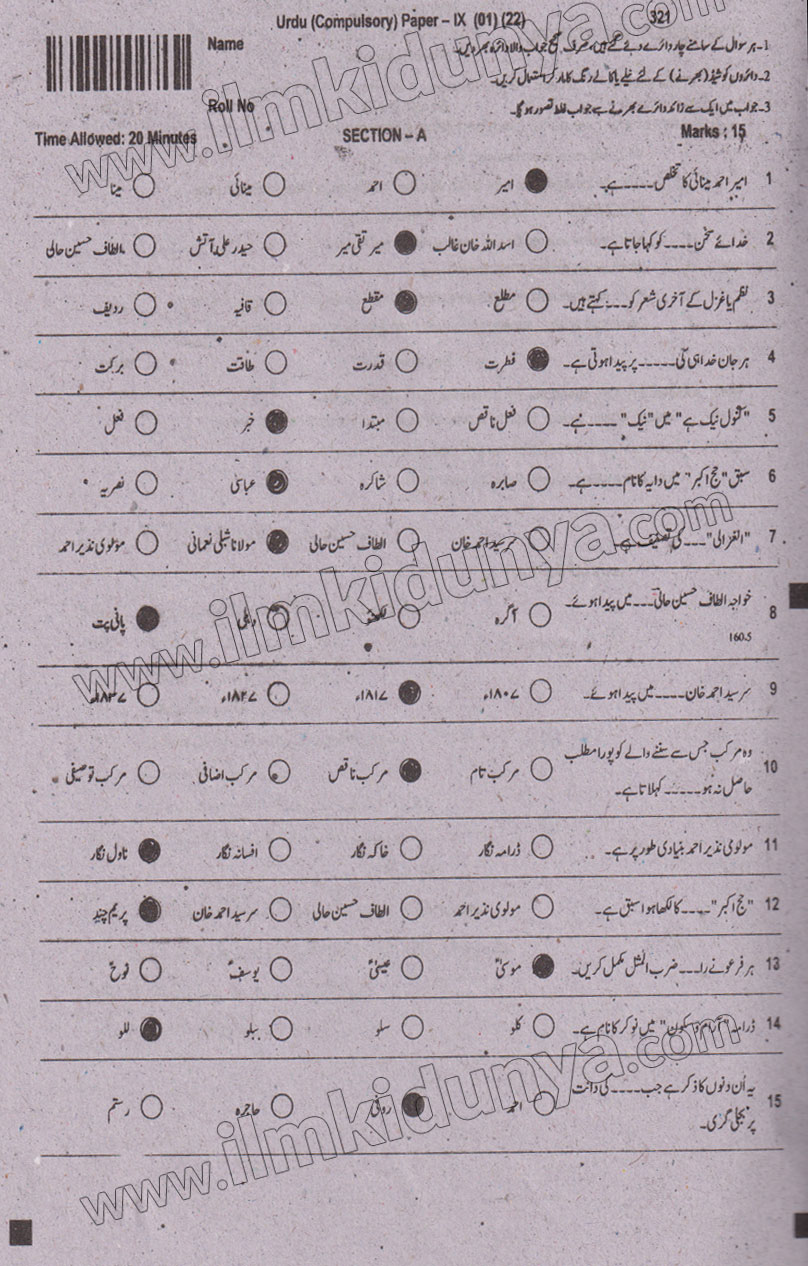 Urdu (Compulsory) Paper – IX (01) (22) 321
Name
1۔ ہر سوال کے سامنے چار دائرے دئے گئے ہیں، صرف صحیح جواب والا دائرہ بھر دیں۔
2۔ دائروں کو شیڈ (بھرنے) کے لئے نیلے یا کالے رنگ کا مارکر استعمال کریں۔
Roll No
3۔ جواب میں ایک سے زائد دائرے بھرنے سے جواب غلط تصور ہوگا۔
Time Allowed: 20 Minutes SECTION – A Marks : 15
1 امیر احمد مینائی کا تخلص ۔۔۔۔ ہے۔ امیر احمد مینائی مینا
2 خدائے سخن ۔۔۔۔ کو کہا جاتا ہے۔ اسد اللہ خان غالب میر تقی میر حیدر علی آتش الطاف حسین حالی
3 نظم یا غزل کے آخری شعر کو ۔۔۔ کہتے ہیں۔ مطلع مقطع قافیہ ردیف
4 ہر جان خدا ہی کی ۔۔۔۔۔ پر پیدا ہوتی ہے۔ فطرت قدرت طاقت برکت
5 "کنول نیک ہے" میں "نیک" ۔۔۔۔ ہے۔ فعل ناقص مبتدا خبر فعل
6 سبق "حج اکبر" میں دایہ کا نام ۔۔۔۔ ہے۔ صابرہ شاکرہ عباسی نصریہ
7 "الغزالی" ۔۔۔ کی تصنیف ہے۔ سرسید احمد خان الطاف حسین حالی مولانا شبلی نعمانی مولوی نذیر احمد
8 خواجہ الطاف حسین حالی ۔۔۔ میں پیدا ہوئے۔ آگرہ لکھنؤ دہلی پانی پت
160.5
9 سرسید احمد خان ۔۔۔۔ میں پیدا ہوئے۔ ۱۸۰۷ء ۱۸۱۷ء ۱۸۲۷ء ۱۸۳۷ء
10 وہ مرکب جس سے سننے والے کو پورا مطلب
حاصل نہ ہو ۔۔۔۔۔ کہلاتا ہے۔ مرکب تام مرکب ناقص مرکب اضافی مرکب توصیفی
11 مولوی نذیر احمد بنیادی طور پر ہے۔ ڈرامہ نگار خاکہ نگار افسانہ نگار ناول نگار
12 "حج اکبر" ۔۔۔۔ کا لکھا ہوا سبق ہے۔ مولوی نذیر احمد الطاف حسین حالی سرسید احمد خان پریم چند
13 ہر فرعونے را ۔۔۔ ضرب المثل مکمل کریں۔ موسیٰؑ عیسیٰؑ یوسفؑ نوحؑ
14 ڈرامہ "آرام و سکون" میں نوکر کا نام ہے۔ کلو سلو ببلو للو
15 یہ اُن دنوں کا ذکر ہے جب ۔۔۔۔ کی دانت
پر بجلی گری۔ احمد روفی حاجرہ رستم
www.ilmkidunya.com
www.ilmkidunya.com
www.ilmkidunya.com